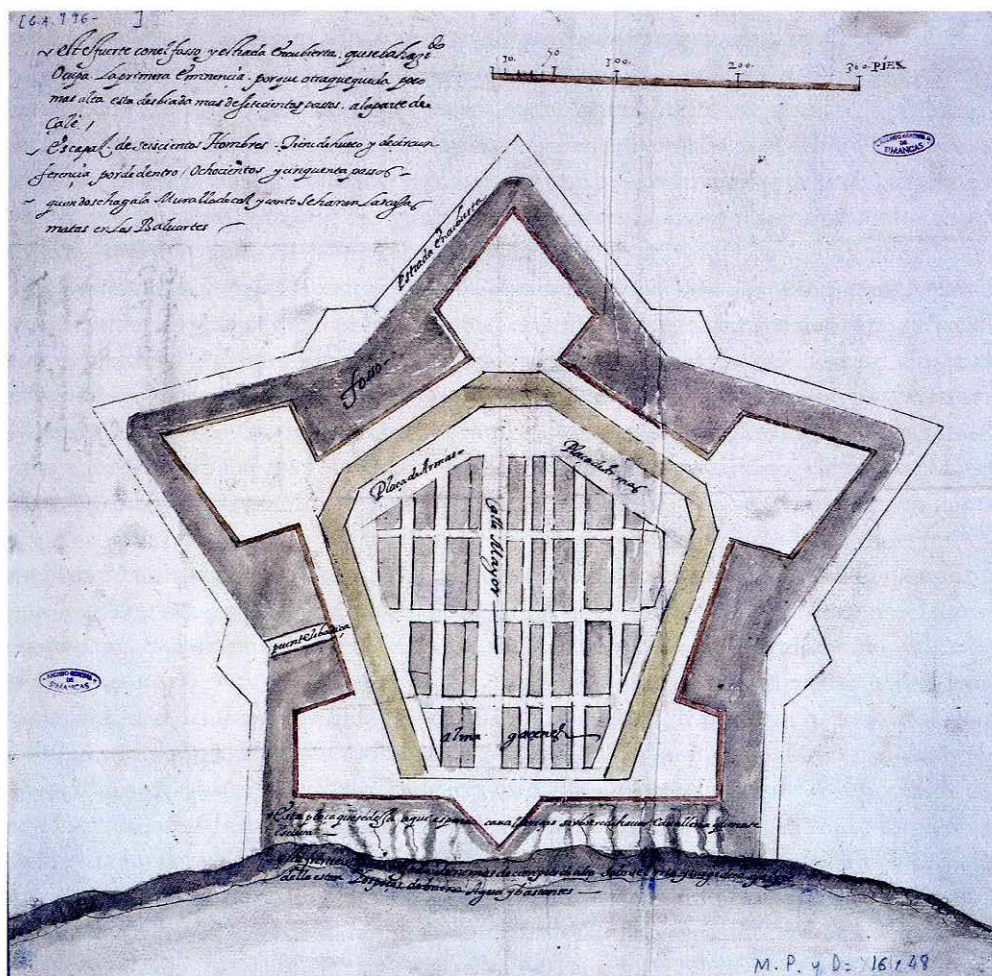 [G.A. 796- ]
este fuerte con el fosso y estrada encubierta. que se ba haziendo
Ocupa La primera eminencia. porque otra que queda poco
mas alta esta desbiada mas de setecientos passos. a la parte de
Çale /
Es capaz. de seiscientos Hombres - Tiene de hueco y de circun
ferencia por de dentro / Ochocientos y cinquenta passos -
quando se haga la Muralla de cal y canto se haran Las casa
matas en Los Baluartes
10. 50 100. 200. 300. PIES.
ARCHIVO GENERAL
DE
SIMANCAS
estrada encubierta
fosso
Plaça de Armas
Plaça de Armas
calle Mayor
puente lebadiça
ARCHIVO GENERAL
DE
SIMANCAS
alma gacenes
Esta plaça que se dessa aqui es para
della estan
de buena Agua y bastantes
M. P. y D. - 16, 48